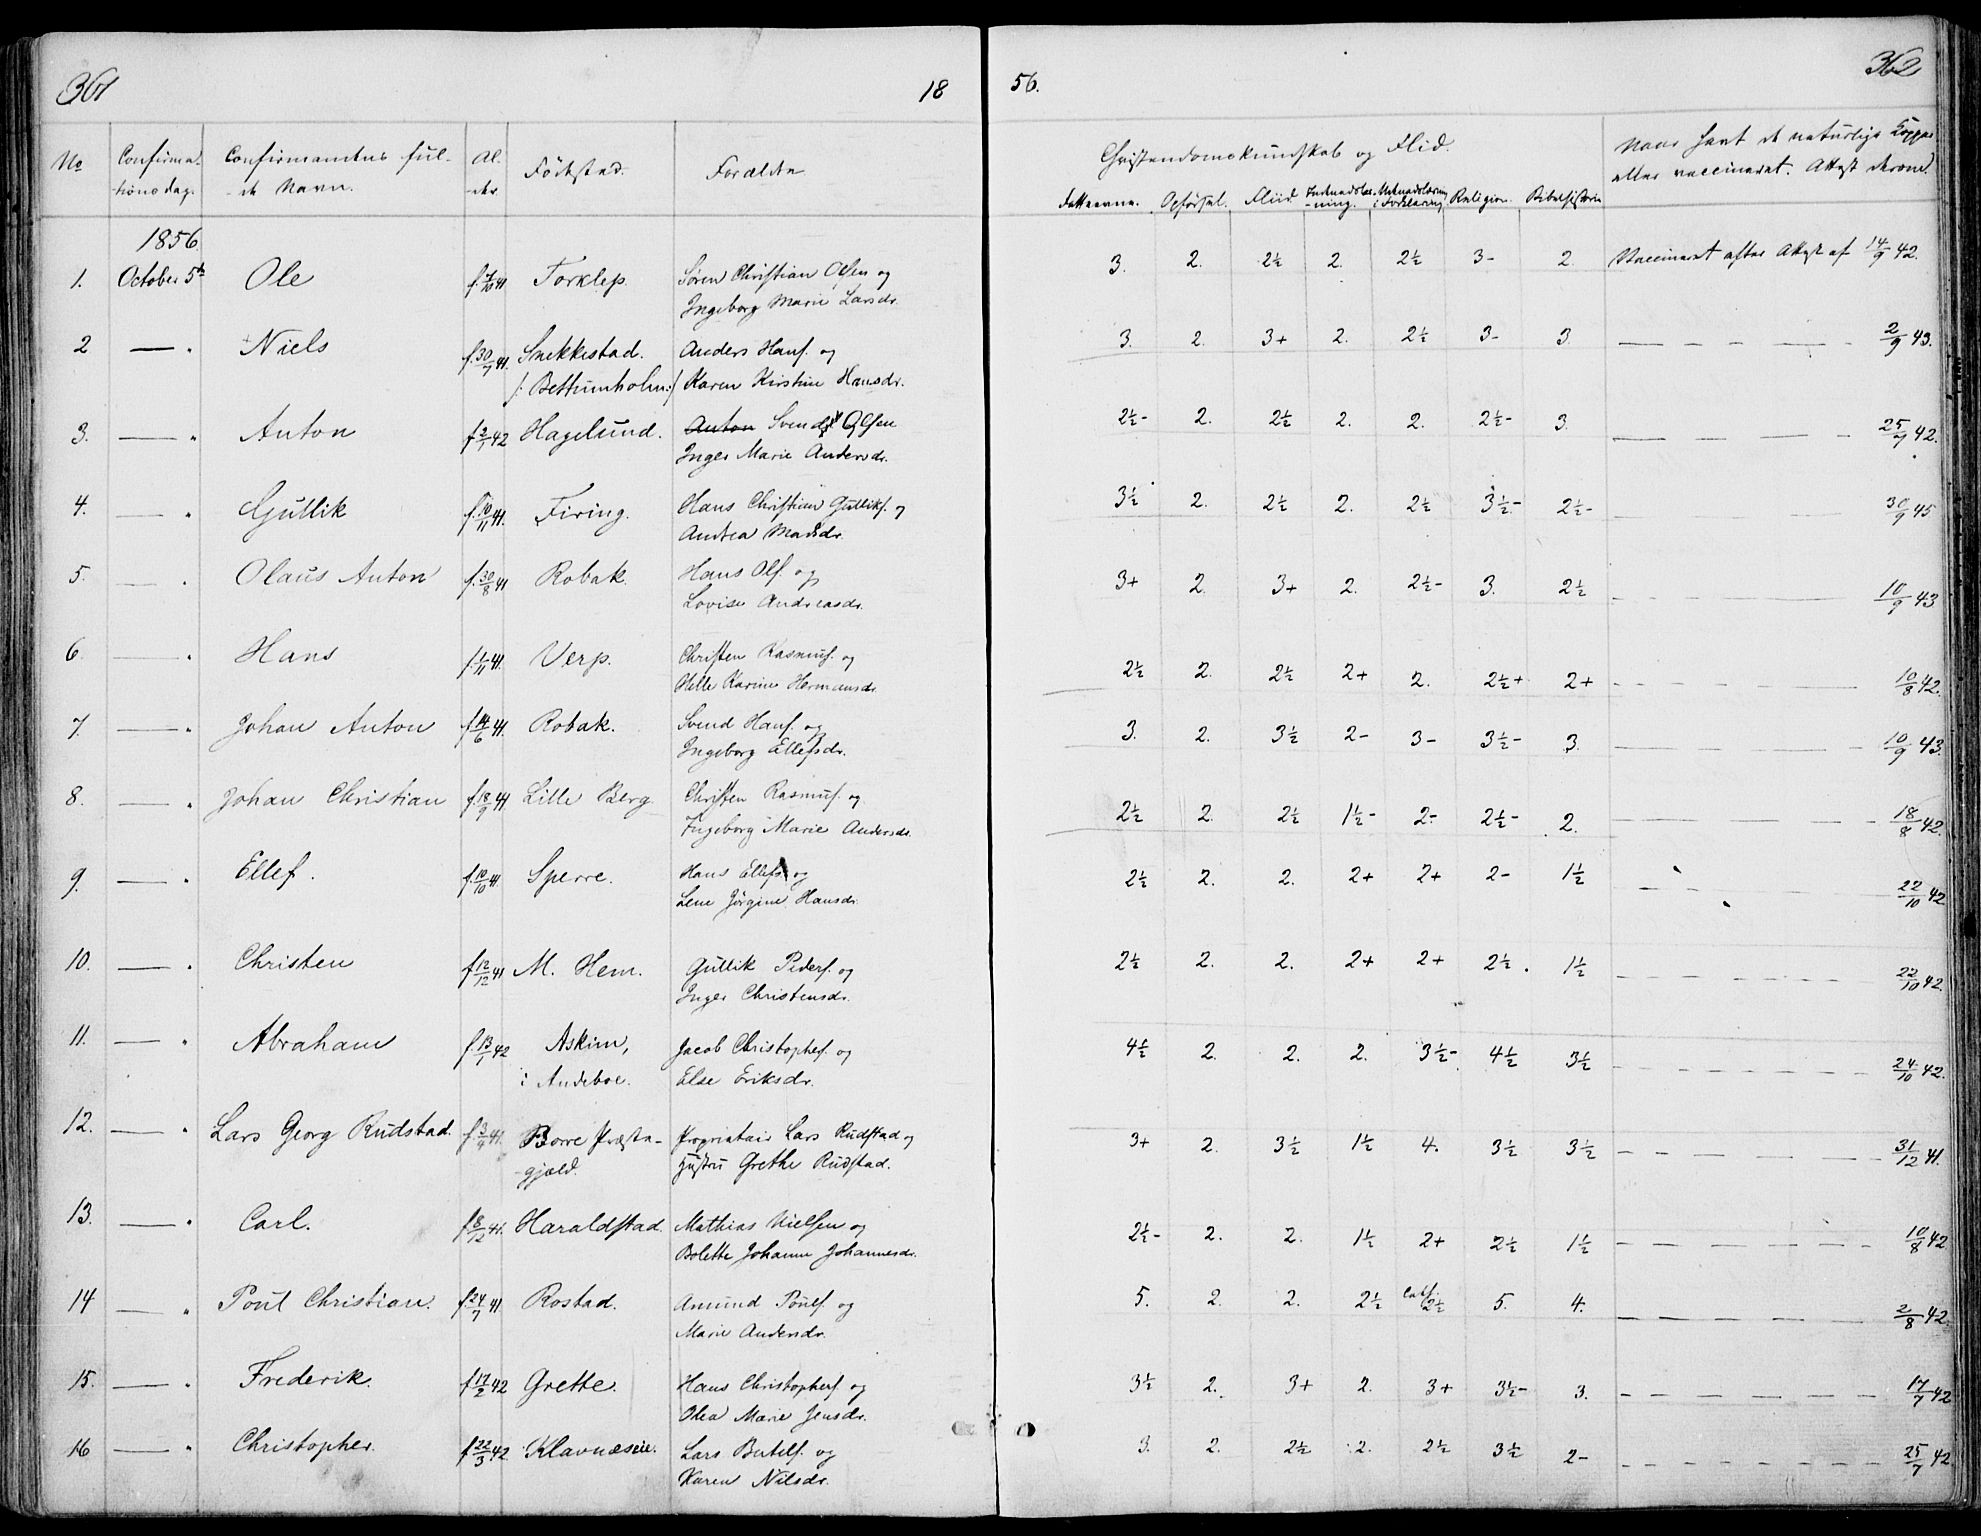 361
18
56.
362
No
Confirma-
tionsdag.
Confirmantens ful-
de Navn.
Al-
der.
Födested.
Forældre
Christendomskundskab og Flid.
Fatteevne. Opförsel. Fliid. Religion. Bibelhistorie
Naar havt de naturlige Kopper
eller vaccineret. Attest derom.
1856.
1. October 5te Ole f. 7/10 41 Torklep. Sören Christian Olsen og
Ingeborg Marie Larsdr.
3. 2. 2½ 2. 2½ 3- 2. Vaccineret efter Attest af 14/9 42.
2 — " Niels f. 30/7 41. Snekkestad. Anders Hans. og
/: Bettumholm:/ Karen Kirstine Hansdr.
3. 2. 3+ 2. 2½ 3- 3. — — — — 2/9 43.
3. — " Anton f. 2/1 42 Hagelund. Anton Svend Olsen
Inger Marie Andersdr.
2½- 2. 2½ 2. 2. 2½- 3. — — — — 25/7 42.
4. — " Gullik f. 10/11 41. Firing. Hans Christian Gulliks. og
Andrea Madsdr.
3½ 2. 2½ 2. 2½ 3½- 2½- — — — — 30/9 45
5. — " Olaus Anton f. 30/8 41 Robak. Hans Ols. og
Lovise Andreasdr.
3+ 2. 3+ 2. 2½- 3. 2½ — — — — 10/9 43
6. — " Hans f. 1/11 41. Verp. Christen Rasmus. og
Helle Karine Hermansdr.
2½ 2. 2½ 2+ 2. 2½+ 2+ — — — — 10/8 42.
7. — " Johan Anton f. 14/6 41. Robak. Svend Hans. og
Ingeborg Ellefsdr.
3. 2. 3½ 2- 3- 3½- 3. — — — — 10/9 43.
8. — " Johan Christian f. 18/9 41 Lille Berg. Christen Rasmus. og
Ingeborg Marie Andersdr.
2½ 2. 2½ 1½- 2- 2½- 2. — — — — 18/8 42.
9. — " Ellef. f. 10/10 41. Sperre. Hans Ellefs. og
Lene Jörgine Hansdr.
2½ 2. 2. 2+ 2+ 2- 1½ — — — — 22/10 42
10. — " Christen f. 12/12 41 M. Hem. Gullik Peders. og
Inger Christensdr.
2½ 2. 2. 2+ 2+ 2½. 1½ — — — — 22/10 42.
11. — " Abraham f. 13/1 42 Askim, Jacob Christophers. og
i Andeboe. Else Eriksdr.
4½ 2. 2. 2. 3½- 4½ 3½ — — — — 24/10 42.
12. — " Lars Georg Rudstad. f. 3/4 41. Borre Præste- Proprietair Lars Rudstad og
gjæld. Hustru Grethe Rudstad.
3+ 2. 3½ 1½ 4. 3½ 3½ — — — — 31/12 41.
13. — " Carl. f. 8/12 41. Haraldstad. Mathias Nielsen og
Bolette Johanne Johannesdr.
2½- 2. 2. 1½ 2+ 2½ 1½ — — — — 10/8 42
14 — " Poul Christian. f. 24/7 41. Rostad. Amund Pouls. og
Marie Andersdr.
5. 2. 2. 2½ 2½ 5. 4. — — — — 2/8 42.
15. — " Frederik. f. 17/2 42 Grette. Hans Christophers. og
Olea Marie Jensdr.
3½ 2. 3+ 2. 3+ 3½- 3. — — — — 17/7 42
16 — " Christopher. f. 22/3 42. Klavnæseie. Lars Bertels. og
Karen Nilsdr.
3. 2. 2½ 2. 2½ 3½ 2- — — — — 25/7 42.